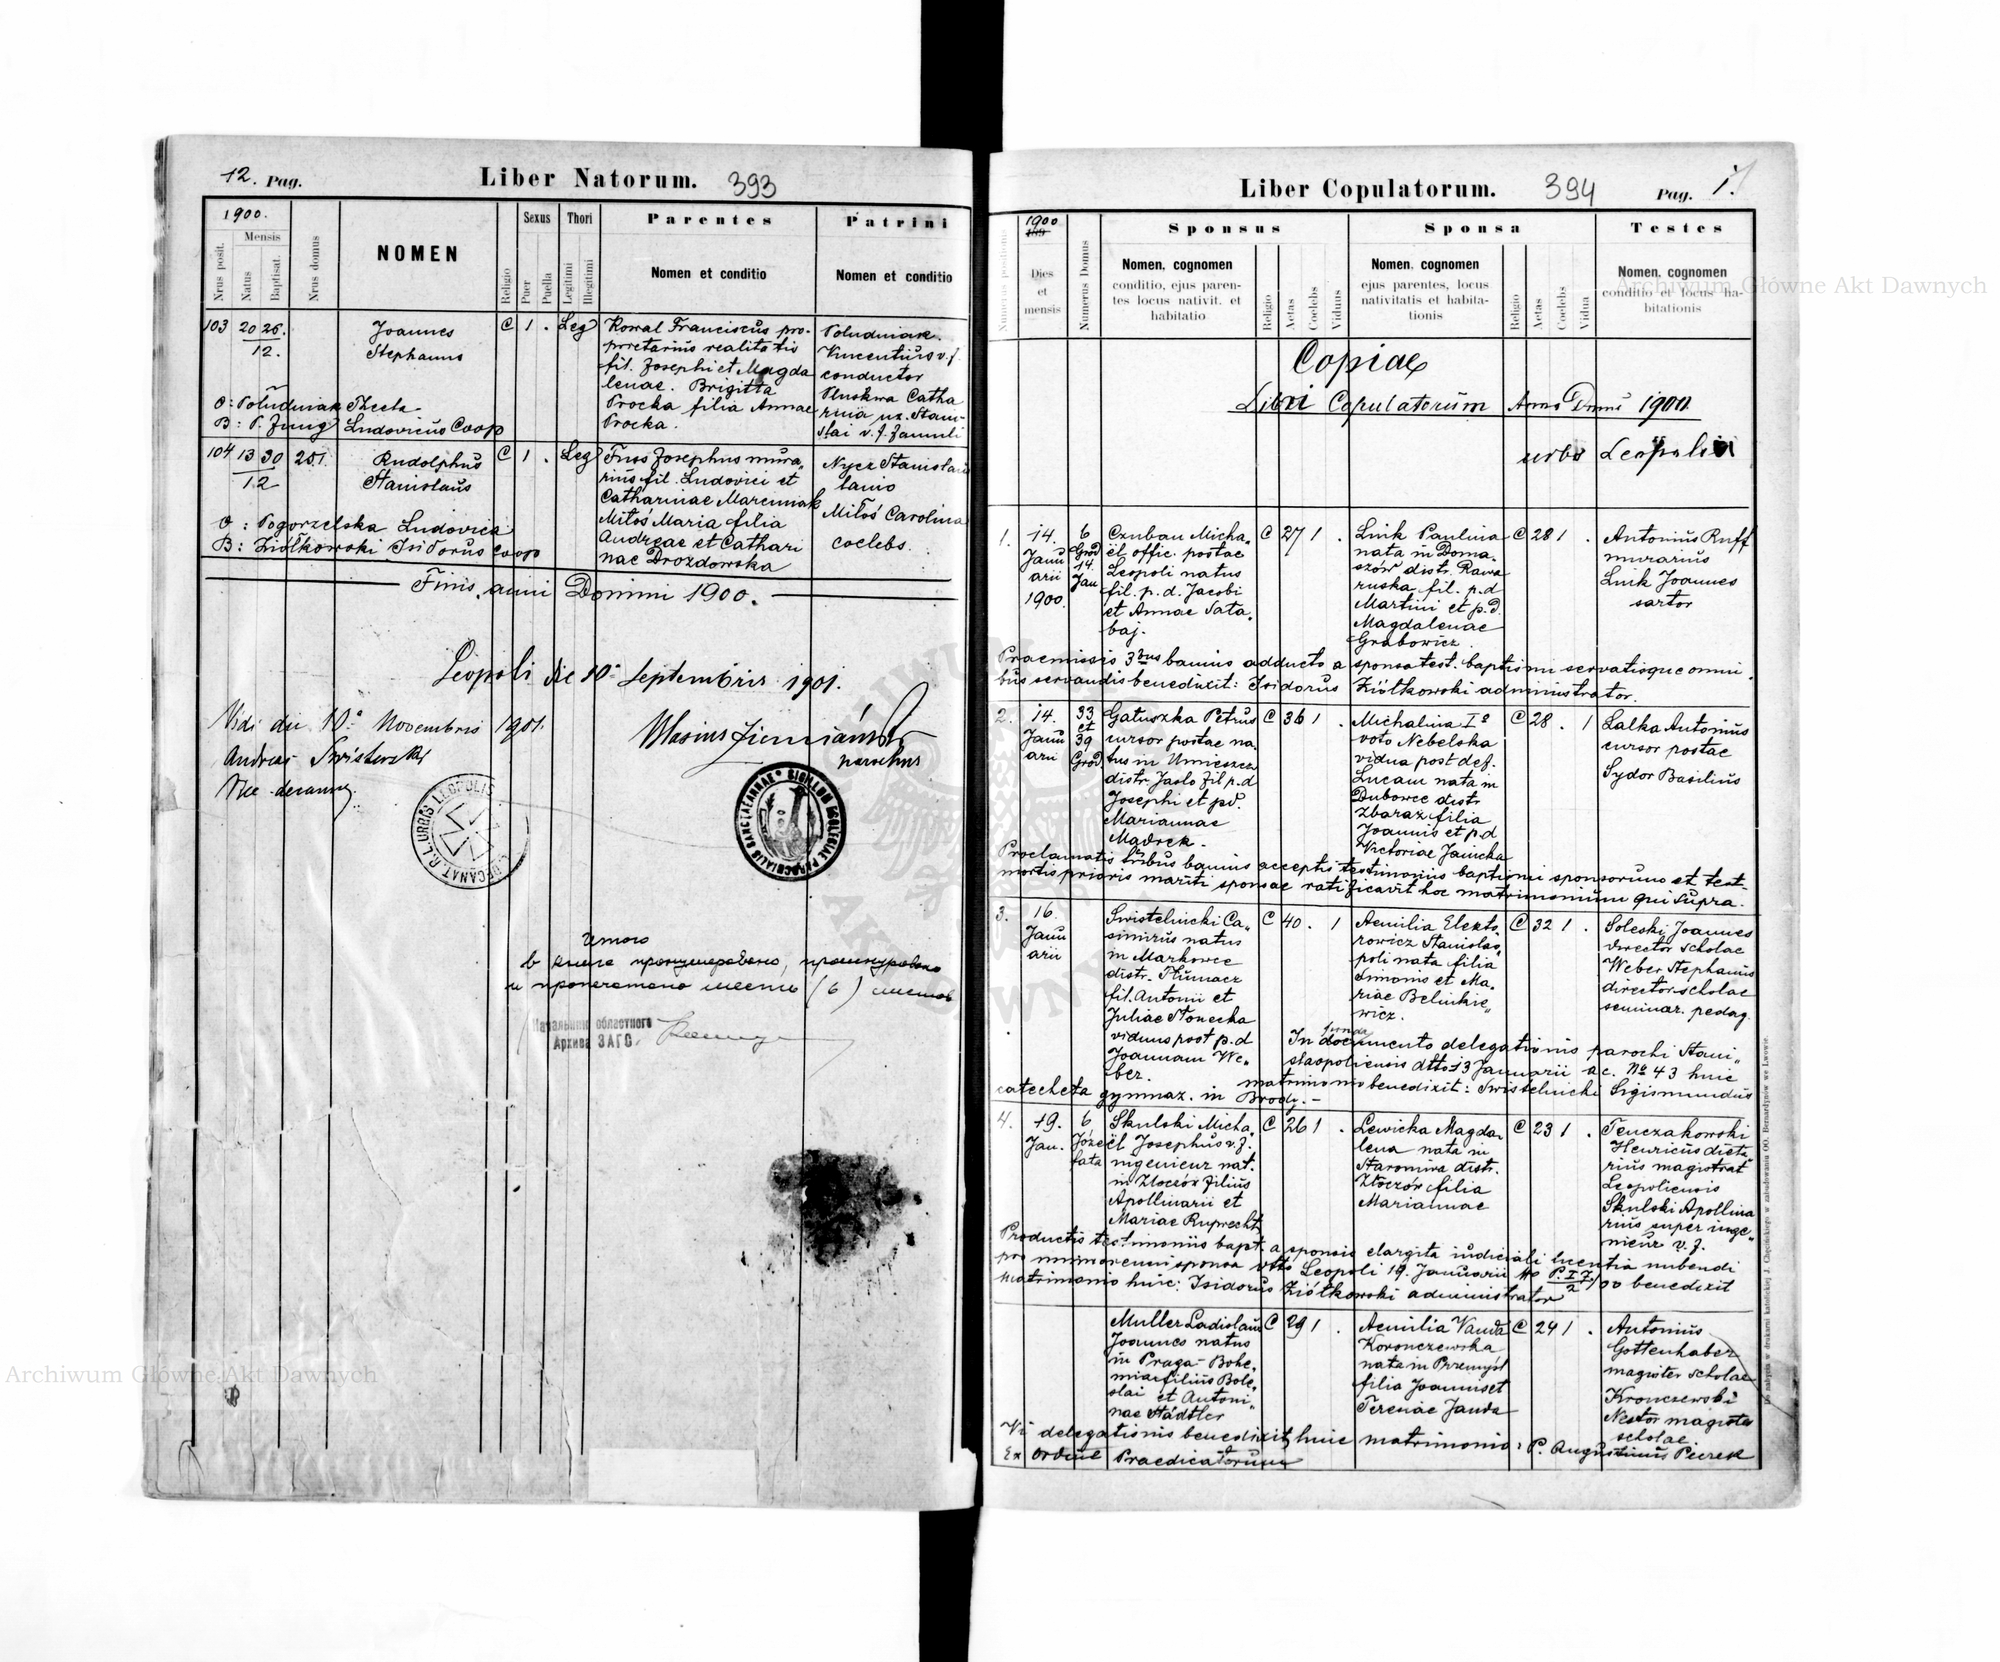 12. Pag.
Liber Natorum.
393
1900.
Nrus posit.
Mensis
Natus
Baptisat.
Nrus domus
NOMEN
Religio
Sexus
Puer
Puella
Thori
Legitimi
Illegitimi
Parentes
Nomen et conditio
Patrini
Nomen et conditio
103 20 26.
12.
Joannes
Stephanus
C 1 . Leg
Kowal Franciscus pro-
prietarius realitatis
fil. Josephi et Magda
lenae. Brigitta
Procka filia Annae
Procka.
Poludniak
Vincentius v. f.
conductor
Pluskwa Catha
rina ux. Stani
slai v. f. famuli
O: Poludniak Thecla
B: P. Jung Ludovicus Coop
104 13 30 251.
12
Rudolphus
Stanislaus
C 1 . Leg
Fuss Josephus mura,
rius fil. Ludovici et
Catharinae Marciniak
Miłoś Maria filia
Andreae et Cathari
nae Drozdowska
Nycz Stanislaus
lanio
Miłoś Carolina
coelebs.
O: Pogorzelska Ludovica
B: Ziółkowski Isidorus coop
Finis anni Domini 1900.
Leopoli die 10 Septembris 1901.
Vidi die 10ª Novembris 1901.
Andreas
Vice-decanus
parochus
DECANAT. R. L. URBIS LEOPOLIS
SIGILLUM ECCLESIAE PAROCHIALIS SANCTAE ANNAE
Итого
в книге пронумеровано, прошнуровано
и пропечатано шесть (6) листов
Начальник областного
Архива ЗАГС.
Liber Copulatorum.
394
Pag. 1.
Numerus positionis
1900
189
Dies
et
mensis
Numerus Domus
Sponsus
Nomen, cognomen
conditio, ejus paren-
tes locus nativit. et
habitatio
Religio
Aetas
Coelebs
Viduus
Sponsa
Nomen, cognomen
ejus parentes, locus
nativitatis et habita-
tionis
Religio
Aetas
Coelebs
Vidua
Testes
Nomen, cognomen
conditio et locus ha-
bitationis
Copiae
Libri Copulatorum Anno Domi 1900
urbs Leopolis
1. 14.
Janu
arii
1900.
6
Gród
14.
Jan
Czuban Micha,
ël offic. postae
Leopoli natus
fil. p. d. Jacobi
et Annae Sata,
baj.
C 27 1 .
Link Paulina
nata in Doma,
szów distr. Rawa
ruska fil. p.d
Martini et p.d.
Magdalenae
Grabowicz.
C 28 1 .
Antonius Ruff
murarius
Link Joannes
sartor
Praemissis 3bus bannis adducto a sponsa test. baptismi servatisque omni,
bus servandis benedixit: Isidorus Ziółkowski administrator.
2. 14.
Janu
arii
33
et
39
Gród
Gałuszka Petrus
cursor postae na,
tus in Umieszcz
distr. Jasło fil p.d
Josephi et pd.
Mariannae
Mądrek.
C 36 1 .
Michalina Iº
voto Nebelska
vidua post def.
Lucam nata in
Dubowce distr.
Zbaraz filia
Joannis et p.d
Victoriae Janicka
C 28 . 1
Lalka Antonius
cursor postae
Sydor Basilius
Proclamatis tribus bannis acceptis testimoniis baptismi sponsorum et test.
mortis prioris mariti sponsae ratificavit hoc matrimonium qui supra.
3. 16.
Janu
arii
Swistelnicki Ca,
simirus natus
in Markowce
distr. Tłumacz
fil. Antonii et
Juliae Stonecka
viduus post p.d
Joannam We,
ber.
C 40 . 1
Aemilia Elekto,
rowicz Stanislao,
poli nata filia
Simonis et Ma,
riae Belnikie,
wicz.
C 32 1 .
Soleski Joannes
director scholae
Weber Stephanus
director scholae
seminar. pedag.
In documento delegationis parochi Stani,,
slaopoliensis dtto 13 Januarii a c. Nº 43 huic
matrimonio benedixit: Swistelnicki Sigismundus
catecheta gymnaz. in Brody. -
4. 19.
Jan.
6
Józe
fata
Skulski Micha,
ël Josephus v. f.
ingenieur nat.
in Złoczów filius
Apollinarii et
Mariae Ruprecht
C 26 1 .
Lewicka Magda,
lena nata in
Staromira distr.
Złoczów filia
Mariannae
C 23 1 .
Tenczakowski
Henricus dieta,
rius magistrat
Leopoliensis
Skulski Apollina
rius super inge,
nieur v. f.
Productis testimoniis bapt. a sponsis elargita iudiciali licentia nubendi
pro minorenni sponsa dtto Leopoli 19. Januarii No P.I 7/2 00 benedixit
matrimonio huic: Isidorus Ziółkowski administrator
Muller Ladislaus
Joannes natus
in Praga-Bohe,
mia filius Bole,
slai et Antoni,
nae Städtler
C 29 1 .
Aemilia Vanda
Koronczewska
nata in Przemyśl
filia Joannis et
Teresiae Janda
C 24 1 .
Antonius
Gottenhaber
magister scholae
Kronczewski
Nestor magister
scholae
Vi delegationis benedixit huic matrimonio: P. Augustinus Pierek
Ex Ordine Praedicatorum
Archiwum Główne Akt Dawnych
Archiwum Główne Akt Dawnych